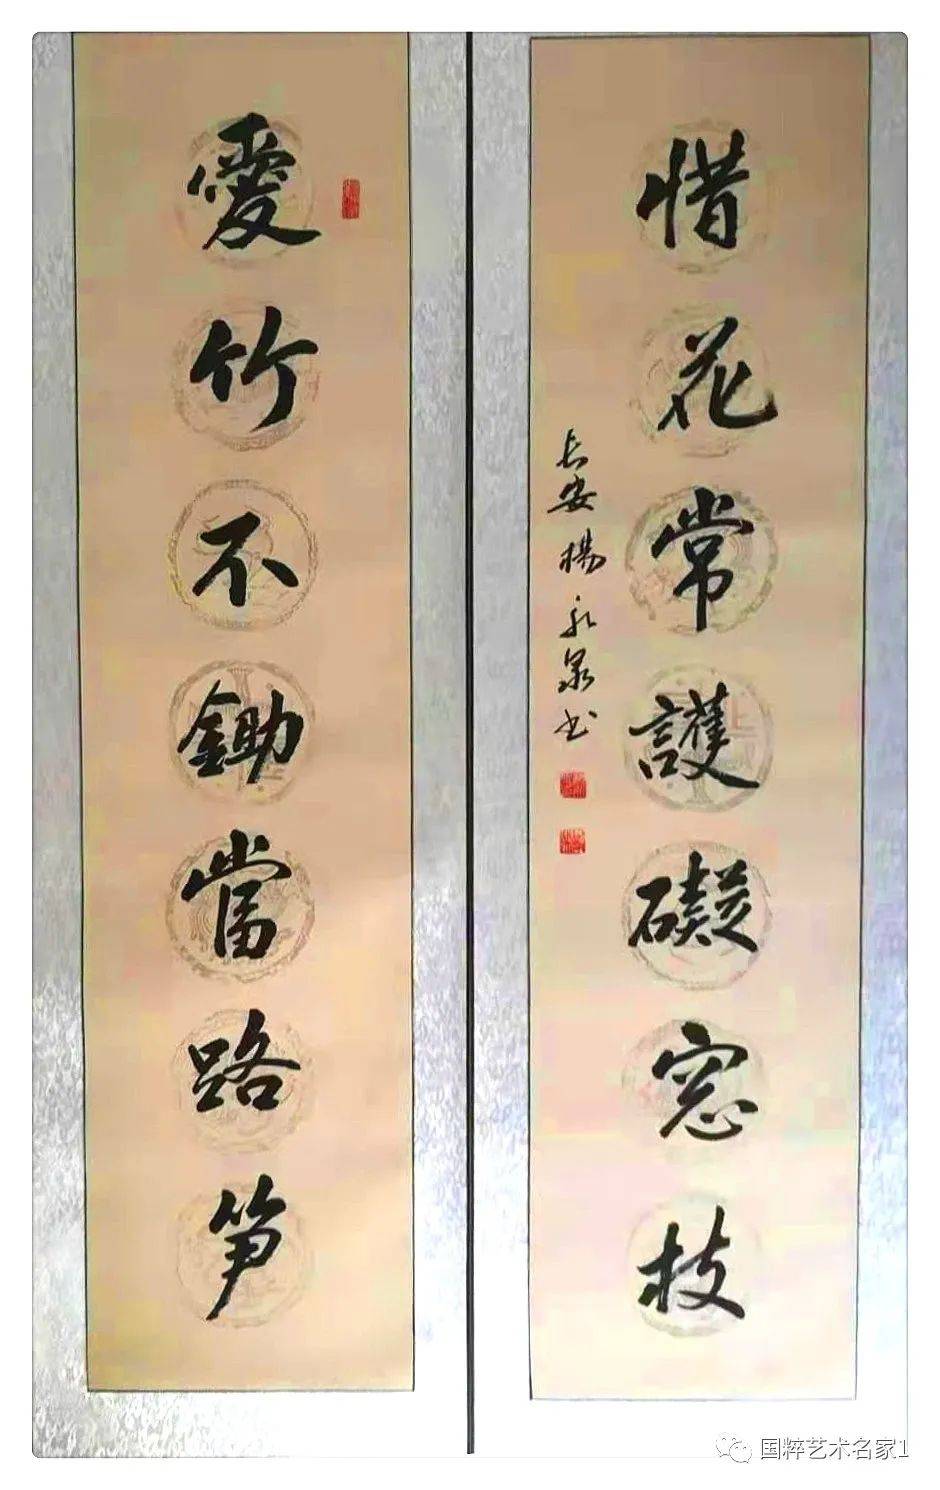 愛竹不鋤當路笋
惜花常護礙窓枝
长安楊永泉书
国粹艺术名家1